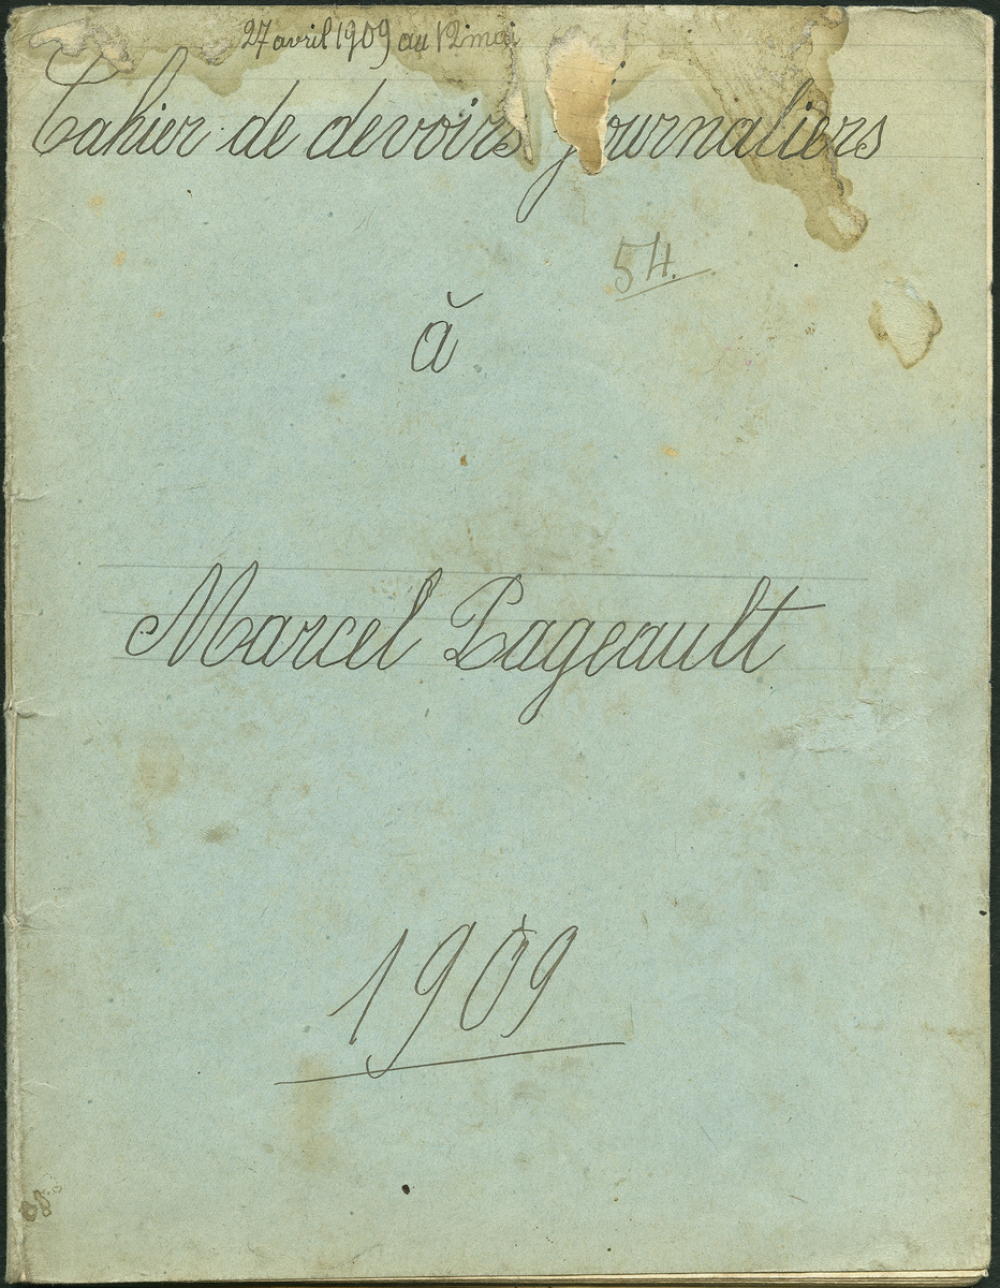 27 avril 1909 au 12 mai
Cahier de devoirs journaliers
54.
à
Marcel Pageault
1909